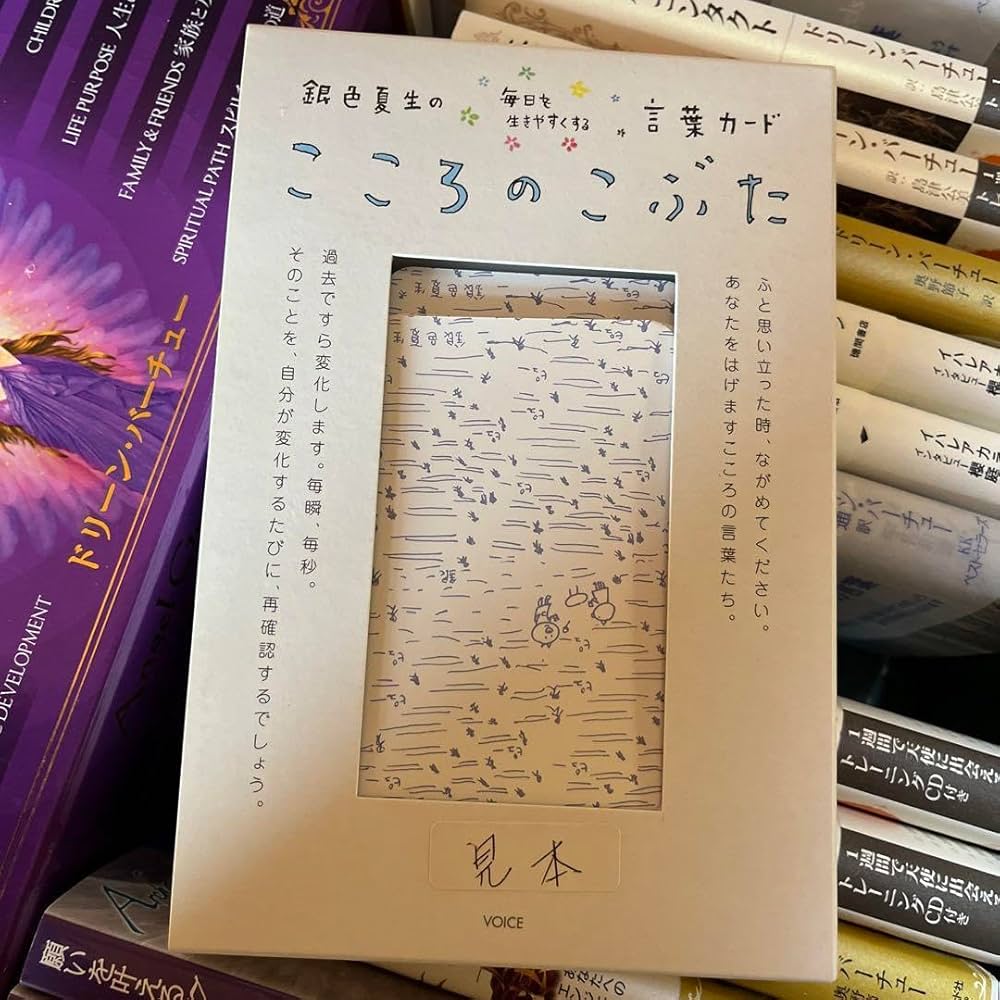 銀色夏生の
毎日を
生きやすくする
言葉カード
こころのこぶた
ふと思い立った時、ながめてください。
あなたをはげますこころの言葉たち。
過去ですら変化します。毎瞬、毎秒。
そのことを、自分が変化するたびに、再確認するでしょう。
銀色夏生
銀色夏生
見本
VOICE
CHILDRE
LIFE PURPOSE 人生
FAMILY & FRIENDS 家族と
SPIRITUAL PATH スピ
ドリーン・バーチュー
DEVELOPMENT
願いを叶える
コンタクト
ドリーン・バーチュー
ン・バーチュー
ドリーン・バーチュー
奥野節子 訳
徳間書店
イハレアカ
インタビュー
イハレアカラ
インタビュー 櫻庭
ン・バーチュー
KK
ベストセラーズ
1週間で天使に出会え
トレーニングCD付き
1週間で天使に出会える
トレーニングCD付き
バーチュー
あなたへの